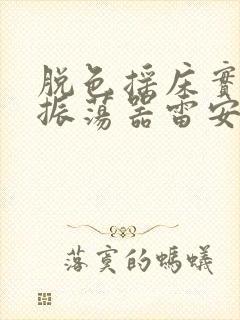 脱色摇床實
振荡器雷安
落寞的螞蟻